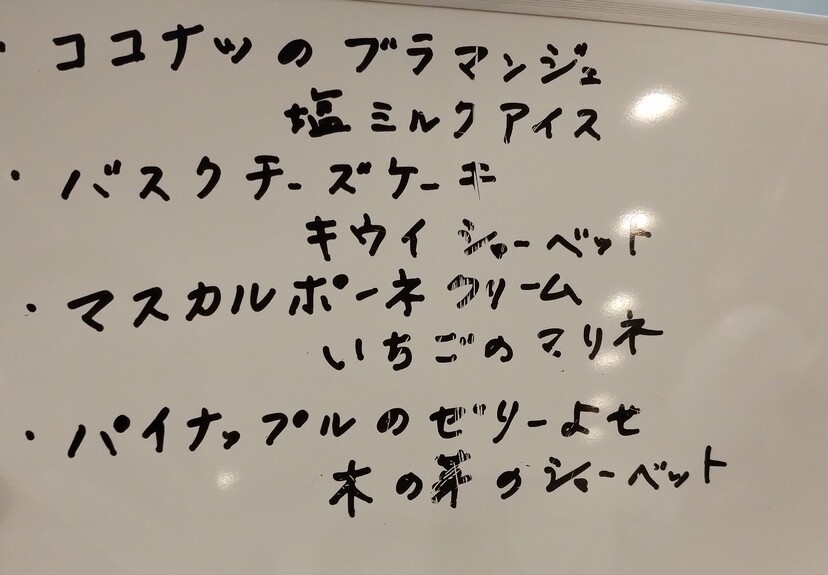 ・ココナッツのブラマンジェ
塩ミルクアイス
・バスクチーズケーキ
キウイシャーベット
・マスカルポーネクリーム
いちごのマリネ
・パイナップルのゼリーよせ
木の芽のシャーベット